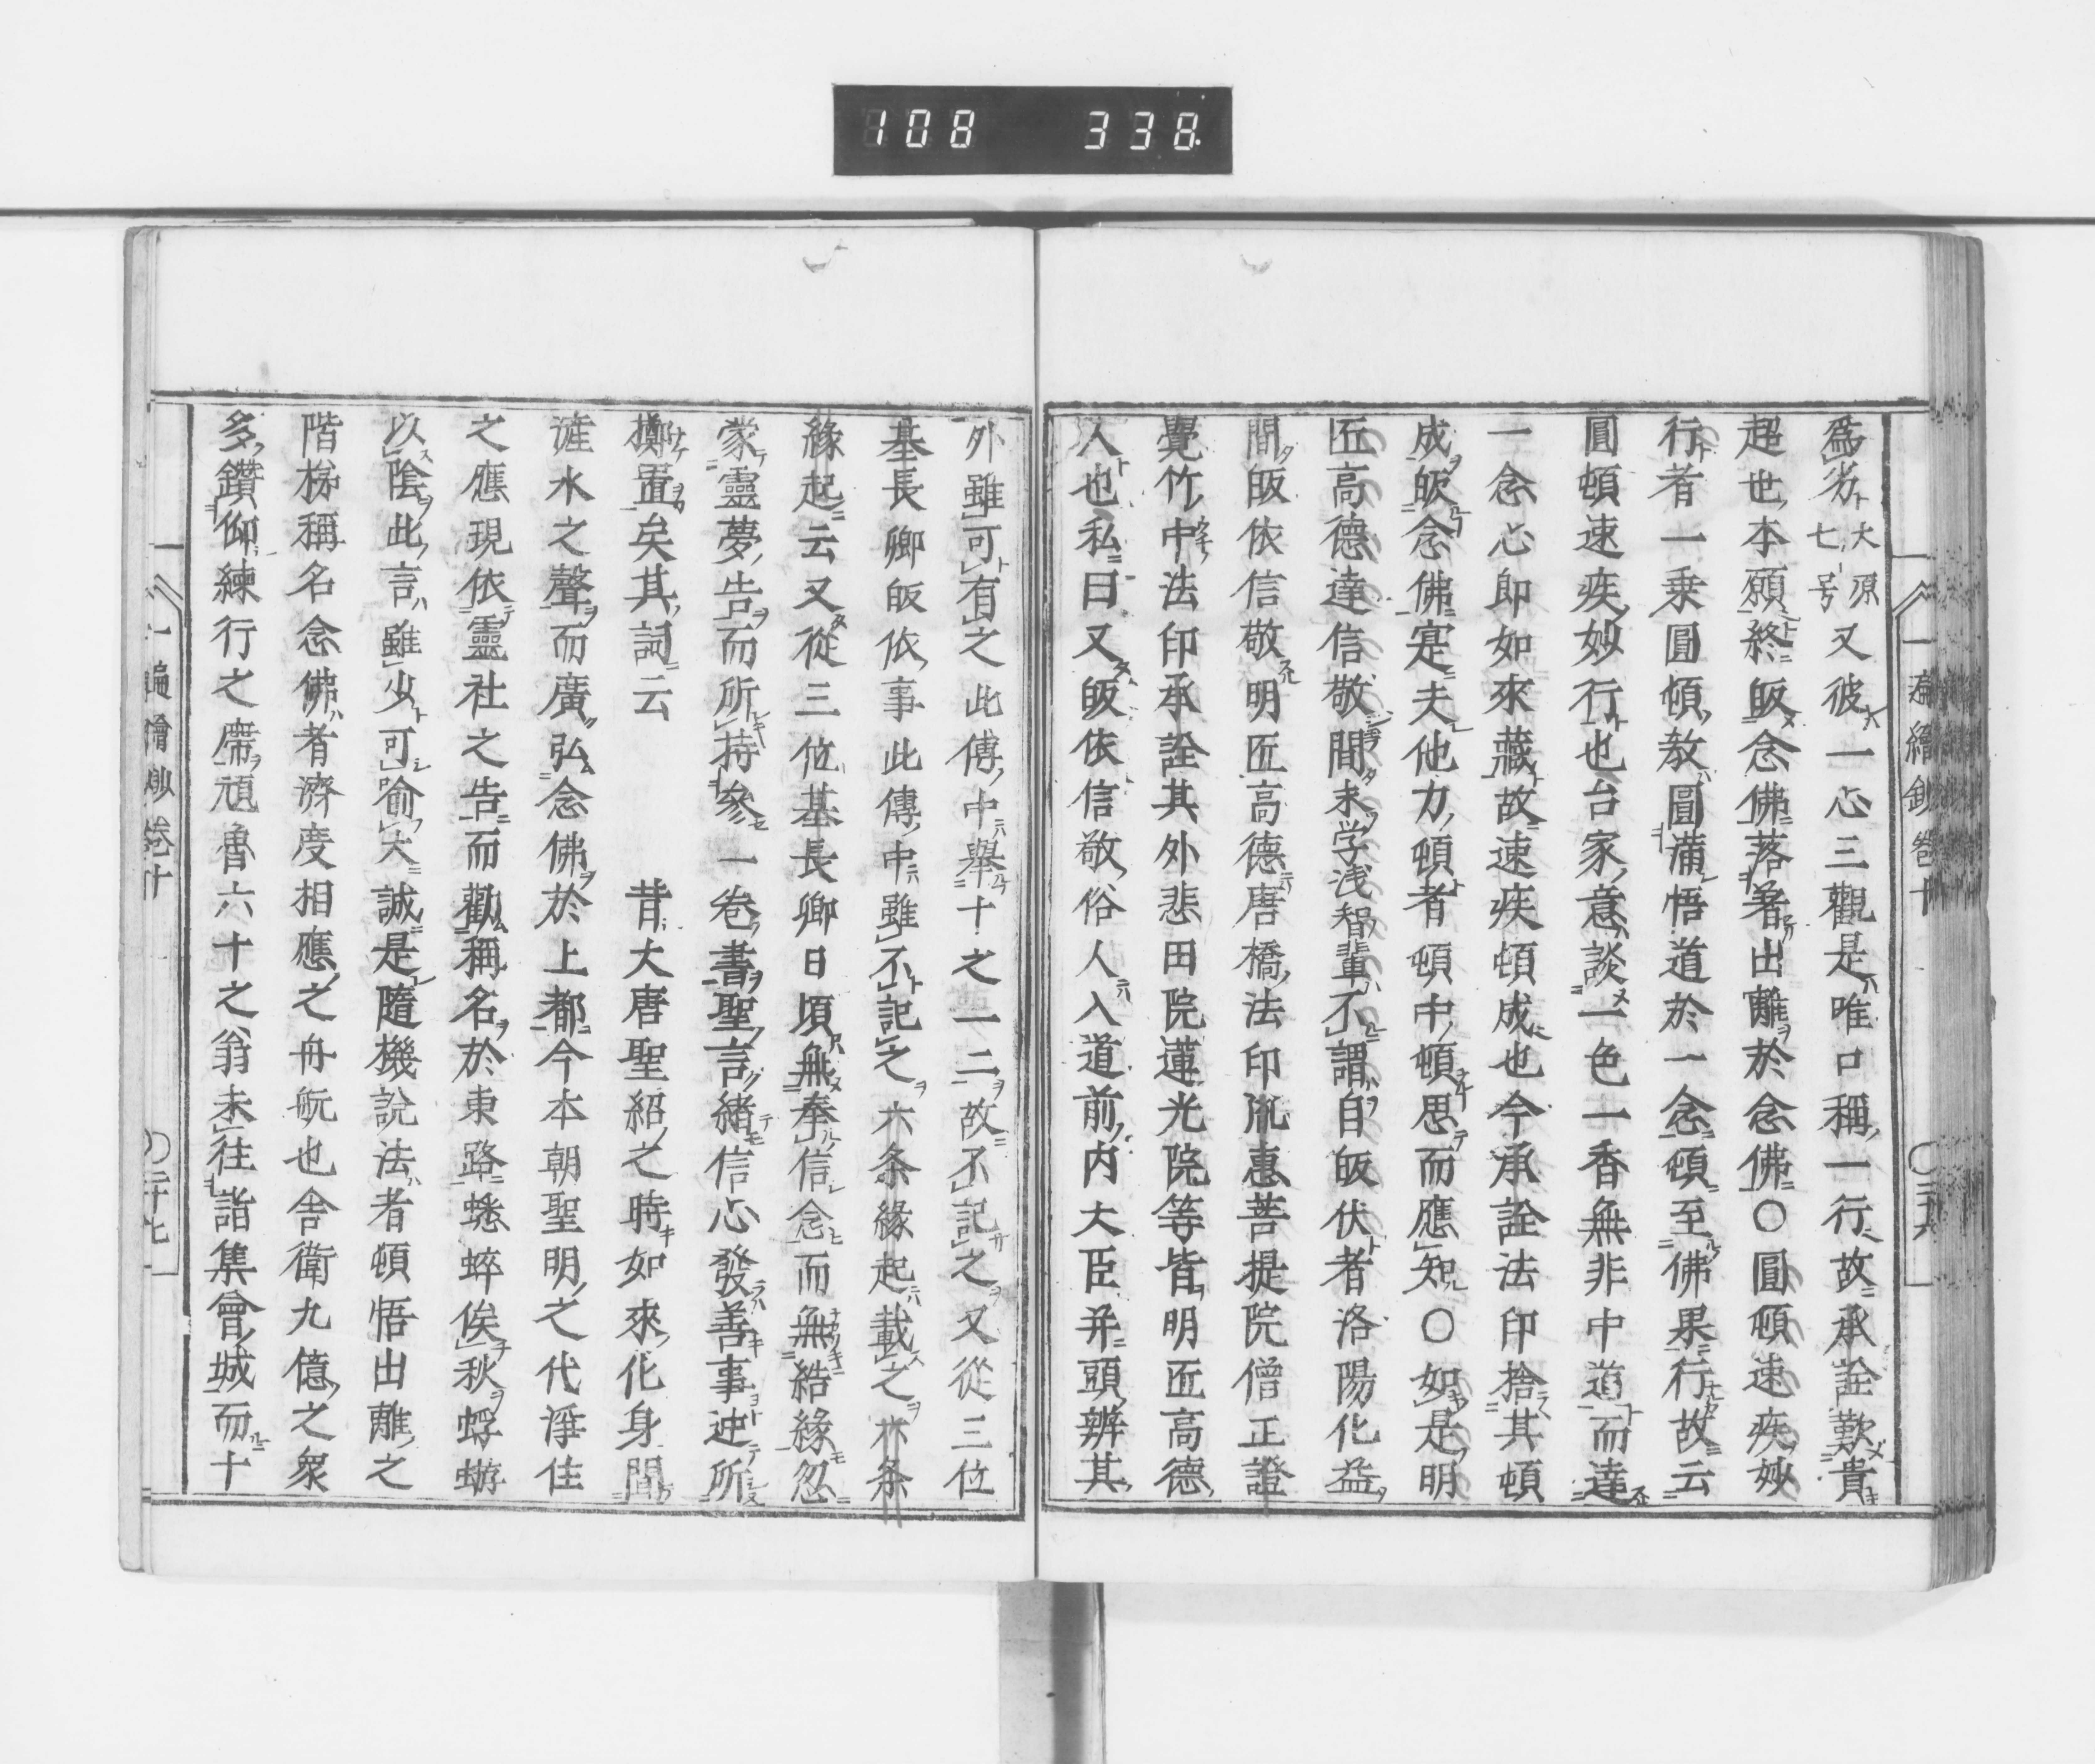 108 338
一遍繪鈔卷十 〇三十六
爲劣大原七号又彼一心三觀是唯口稱一行故承詮歎貴
超世本願終皈念佛落著出離於念佛〇圓頓速疾妙
行者一乗圓頓教圓滿悟道於一念頓至佛果行故云
圓頓速疾妙行也台家意談一色一香無非中道而達
一念心即如來藏故速疾頓成也今承詮法印捨其頓
成皈念佛寔夫他力頓者頓中頓思而應知〇如是明
匠高德達信敬間末学浅智輩不謂自皈伏者洛陽化益
間皈依信敬明匠高德唐橋法印胤惠菩提院僧正證
覺竹中法印承詮其外悲田院蓮光院等皆明匠高德
人也私曰又皈依信敬俗人入道前内大臣并頭辨其
外雖可有之此傳中舉十之一二故不記之又從三位
基長卿皈依事此傳中雖不記之六条緣起載之六条
緣起云又從三位基長卿日頃無奉信念而無結緣忽
蒙靈夢告而所持參一卷書聖言緒信心發善事迚所
擲置矣其詞云 昔大唐聖紹之時如來化身聞
滻水之聲而廣弘念佛於上都今本朝聖明之代淨侄
之應現依靈社之告而勸稱名於東路蟋蟀俟秋蜉蝣
以陰此言雖少可喻大誠是隨機說法者頓悟出離之
階梯稱名念佛者濟度相應之舟航也舍衛九億之衆
多鑽仰練行之席頑魯六十之翁未往詣集會城而十
一遍繪鈔卷十 〇三十七